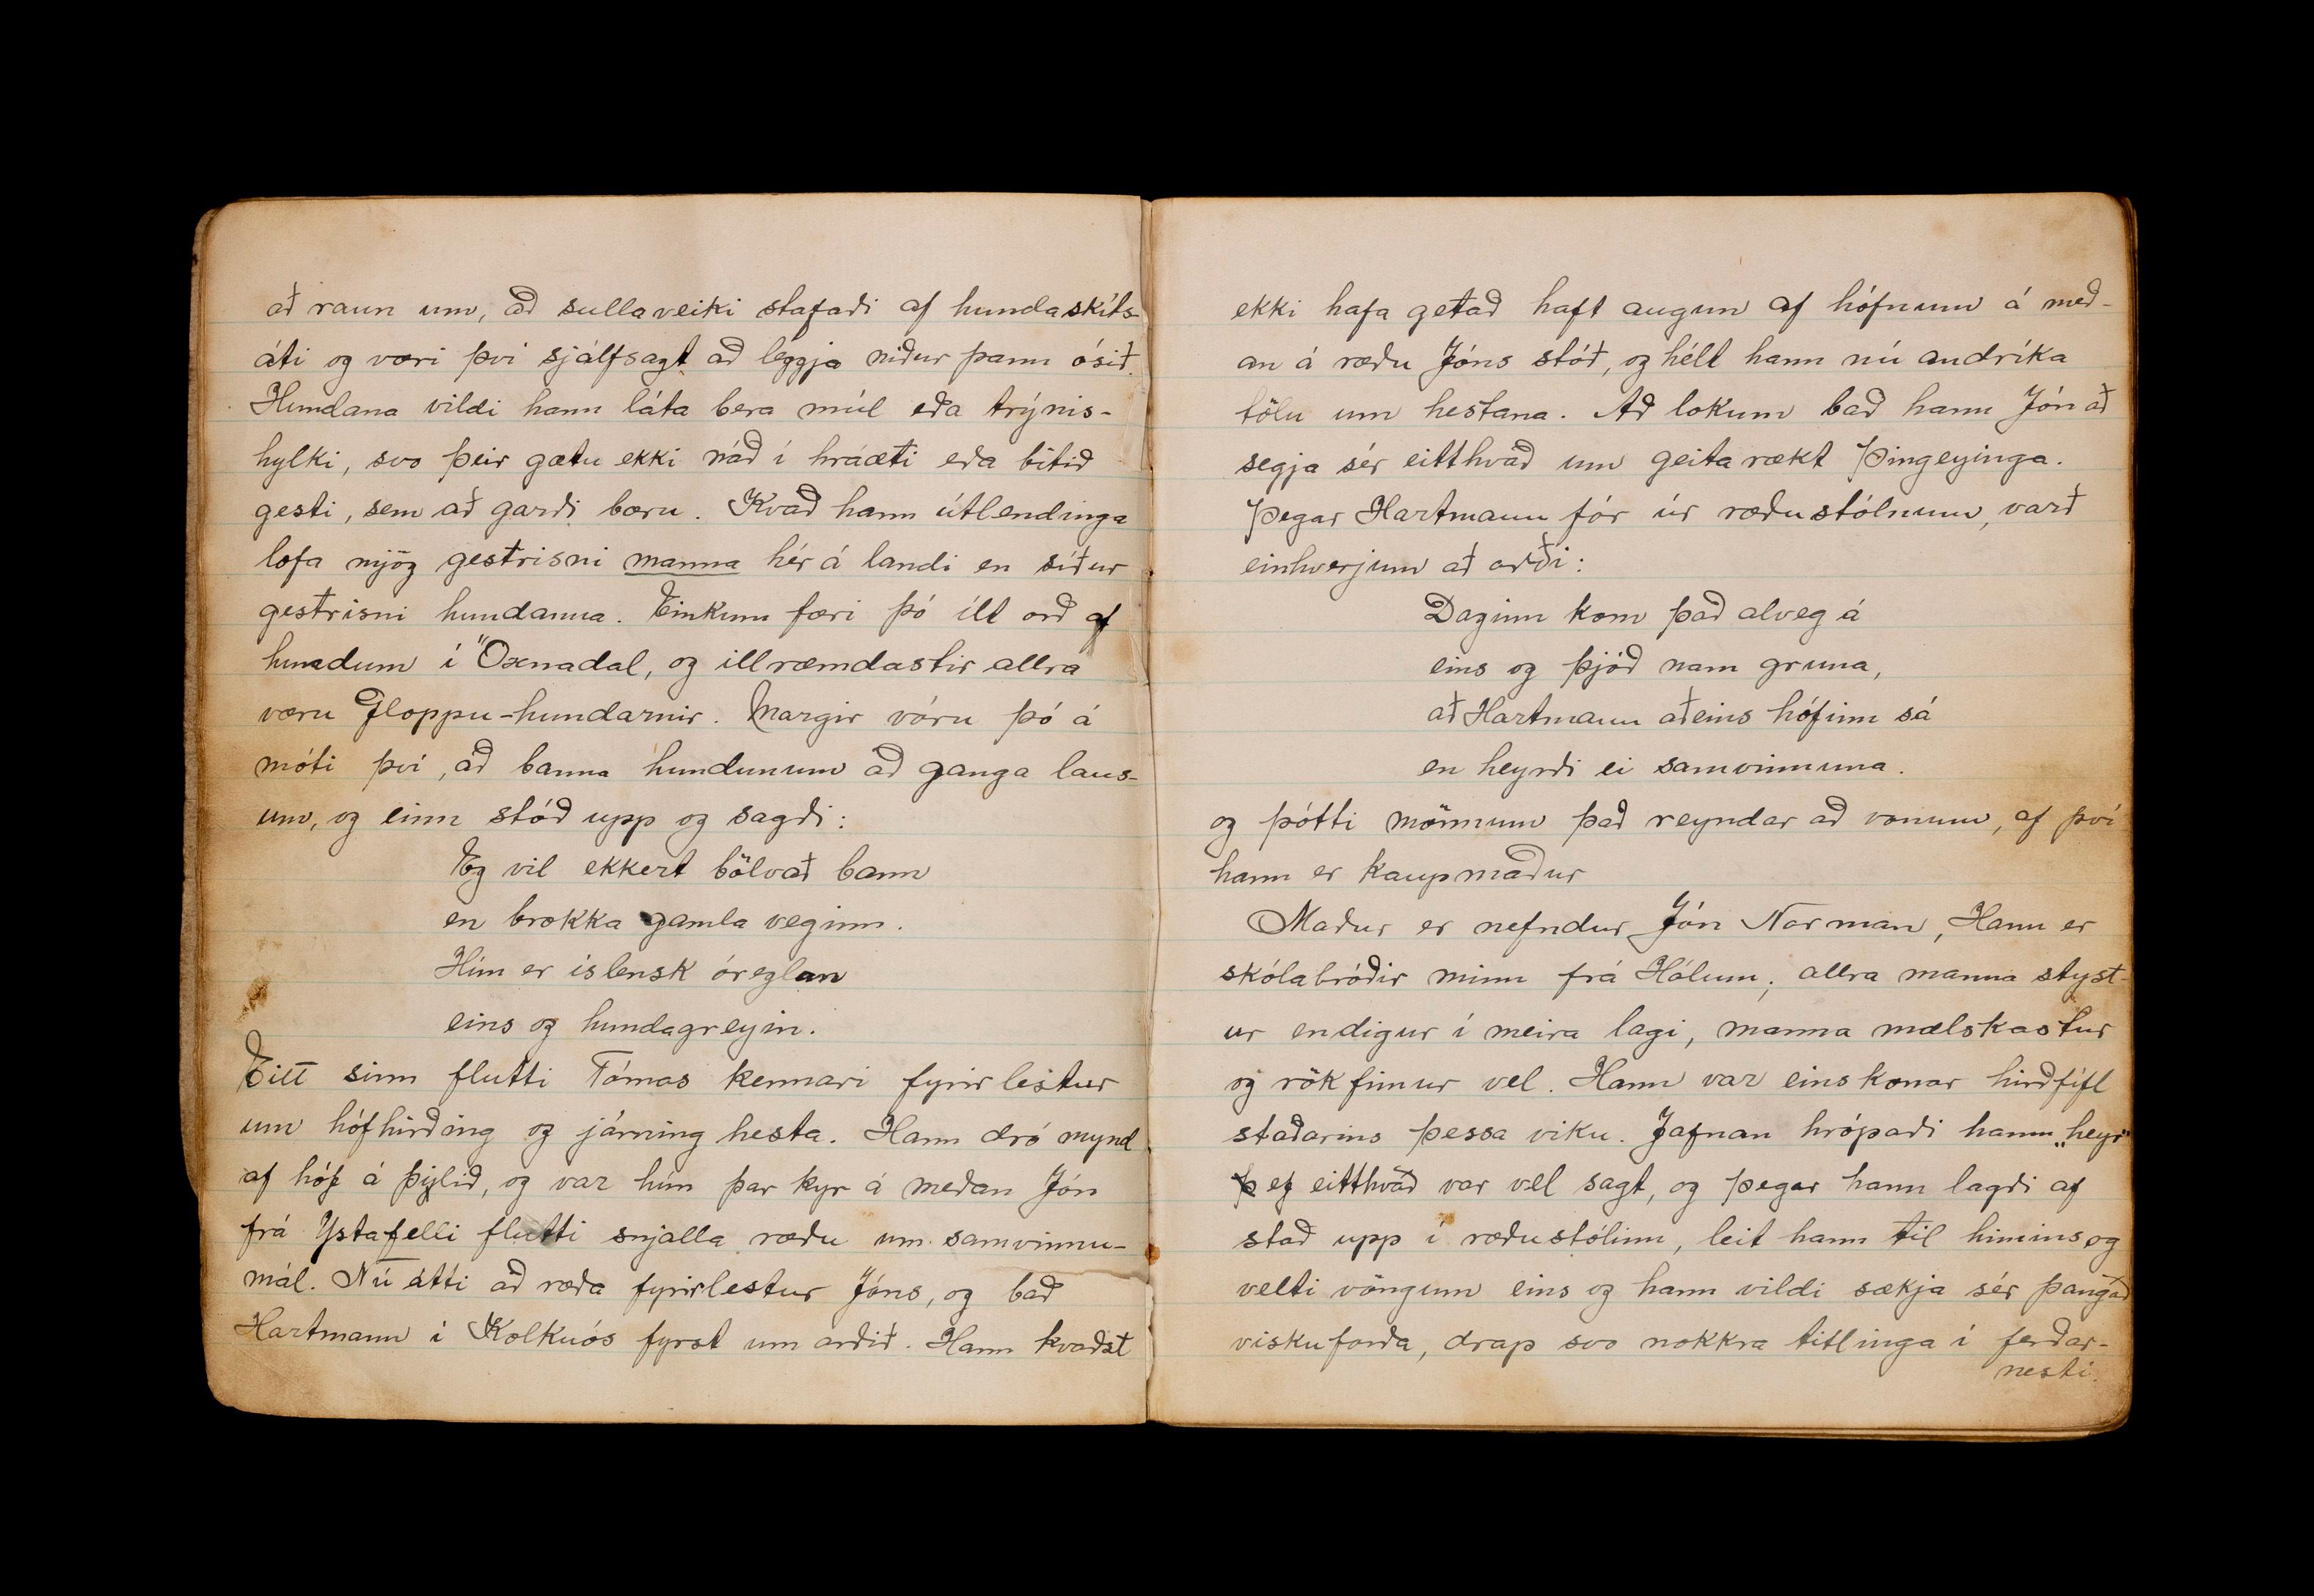 að raun um, að sullaveiki stafaði af hundaskíts-
áti og væri því sjálfsagt að leggja niður þann ósið.
Hundana vildi hann láta bera múl eða trýnis-
hylki, svo þeir gætu ekki náð í hráæti eða bitið
gesti, sem að garði bæru. Kvað hann útlendinga
lofa mjög gestrisni manna hér á landi en síður
gestrisni hundanna. Einkum færi þó illt orð af
hundum í Öxnadal, og illræmdastir allra
væru Gloppu-hundarnir. Margir vóru þó á
móti því, að banna hundunum að ganga laus-
um, og einn stóð upp og sagði:
Eg vil ekkert bölvað bann
en brokka gamla veginn.
Hún er íslensk óreglan
eins og hundagreyin.
Eitt sinn flutti Tómas kennari fyrirlestur
um hófhirðing og járning hesta. Hann dró mynd
af hóf á þilið, og var hún þar kyr á meðan Jón
frá Ystafelli flutti snjalla ræðu um samvinnu-
mál. Nú átti að ræða fyrirlestur Jóns, og bað
Hartmann í Kolkuós fyrst um orðið. Hann kvaðst
ekki hafa getað haft augun af hófnum á með-
an á ræðu Jóns stóð, og hélt hann nú andríka
tölu um hestana. Að lokum bað hann Jón að
segja sér eitthvað um geitarækt Þingeyinga.
Þegar Hartmann fór úr ræðustólnum, varð
einhverjum að orði:
Daginn kom það alveg á
eins og þjóð nam gruna,
að Hartmann aðeins hófinn sá
en heyrði ei samvinnuna.
og þótti mönnum það reyndar að vonum, af því
hann er kaupmaður
Maður er nefndur Jón Norman, Hann er
skólabróðir minn frá Hólum; allra manna styst-
ur en digur í meira lagi, manna mælskastur
og rökfimur vel. Hann var einskonar hirðfífl
staðarins þessa viku. Jafnan hrópaði hann „heyr"
ef eitthvað var vel sagt, og þegar hann lagði af
stað upp í ræðustólinn, leit hann til himins og
velti vöngum eins og hann vildi sækja sér þangað
viskuforða, drap svo nokkra titlinga í ferðar-
nesti.